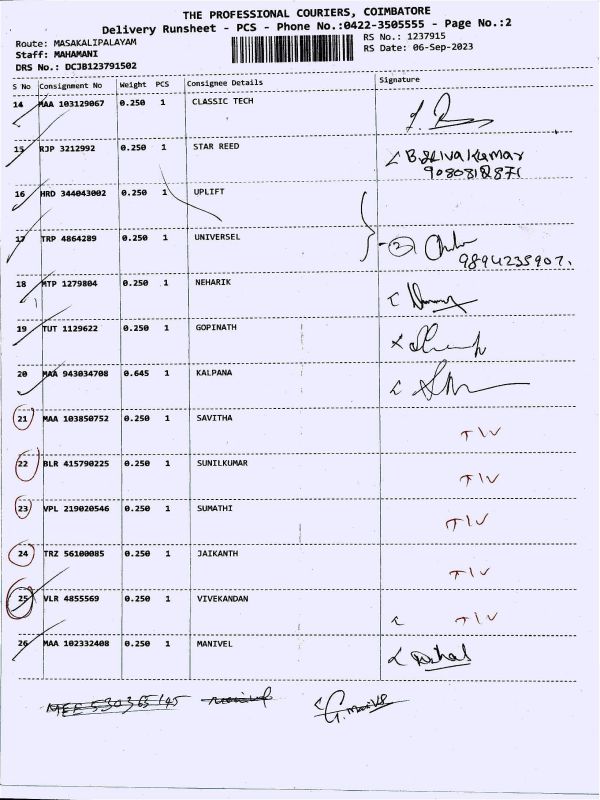 THE PROFESSIONAL COURIERS, COIMBATORE
Delivery Runsheet - PCS - Phone No.:0422-3505555 - Page No.:2
Route: MASAKALIPALAYAM
RS No.: 1237915
Staff: MAHAMANI
RS Date: 06-Sep-2023
DRS No.: DCJB123791502
S No Consignment No Weight PCS Consignee Details Signature
14 MAA 103129067 0.250 1 CLASSIC TECH
15 RJP 3212992 0.250 1 STAR REED B.Shiva Kumar
16 HRD 344043002 0.250 1 UPLIFT
17 TRP 4864289 0.250 1 UNIVERSEL
9894235907.
18 MTP 1279804 0.250 1 NEHARIK
19 TUT 1129622 0.250 1 GOPINATH
20 MAA 943034708 0.645 1 KALPANA
21 MAA 103850752 0.250 1 SAVITHA T/V
22 BLR 415790225 0.250 1 SUNILKUMAR T/V
23 VPL 219020546 0.250 1 SUMATHI T/V
24 TRZ 56100085 0.250 1 JAIKANTH T/V
25 VLR 4855569 0.250 1 VIVEKANDAN T/V
26 MAA 102332408 0.250 1 MANIVEL